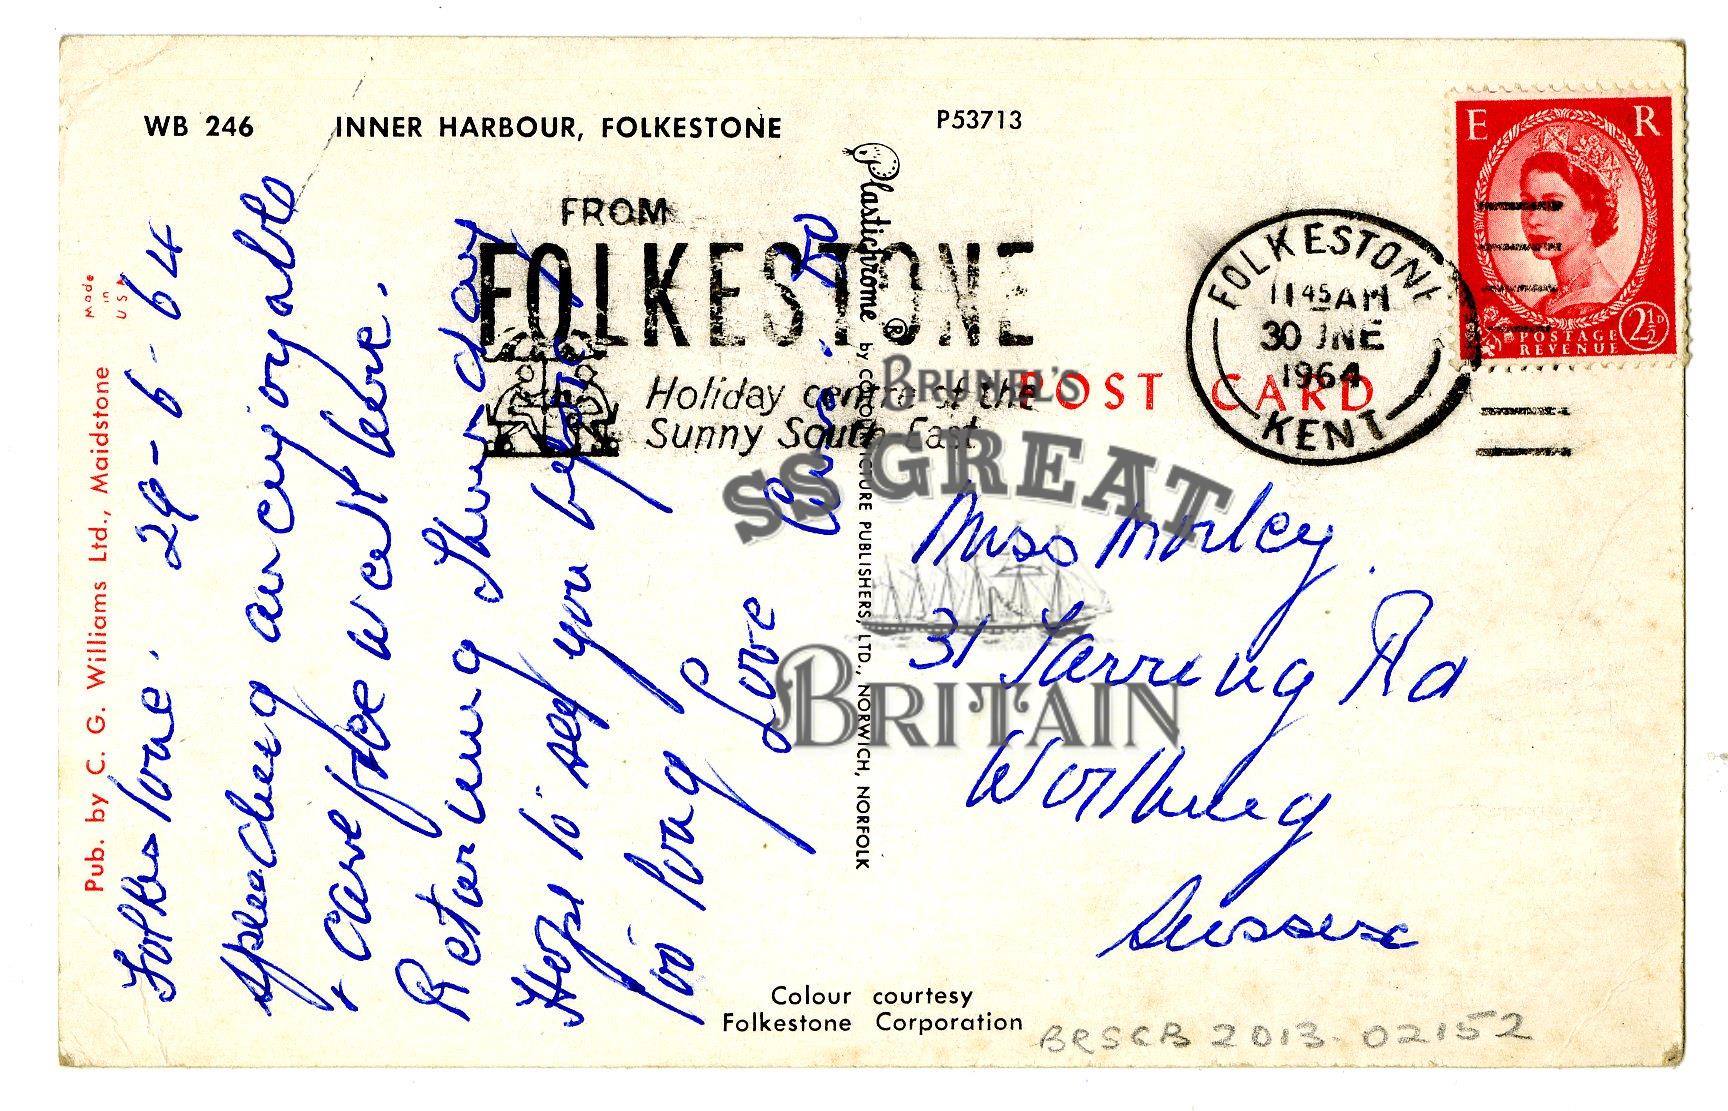 WB 246 INNER HARBOUR, FOLKESTONE P53713
Pub. by C. G. Williams Ltd., Maidstone
Made
in
USA
Folkestone. 29-6-64
Spending an enjoyable
+ care free week here.
Returning Thursday
Hope to see you before
too long
Love
FROM
FOLKESTONE
Holiday centre of the
Sunny South East
Plastichrome ® by COLOURPICTURE PUBLISHERS, LTD., NORWICH, NORFOLK
POST CARD
FOLKESTONE
11 45 AM
30 JNE
1964
KENT
E R
POSTAGE
REVENUE
2½D
BRUNEL'S
SS GREAT
BRITAIN
Miss Morley.
31 Tarring Rd
Worthing
Sussex
Colour courtesy
Folkestone Corporation
BRSGB 2013.02152